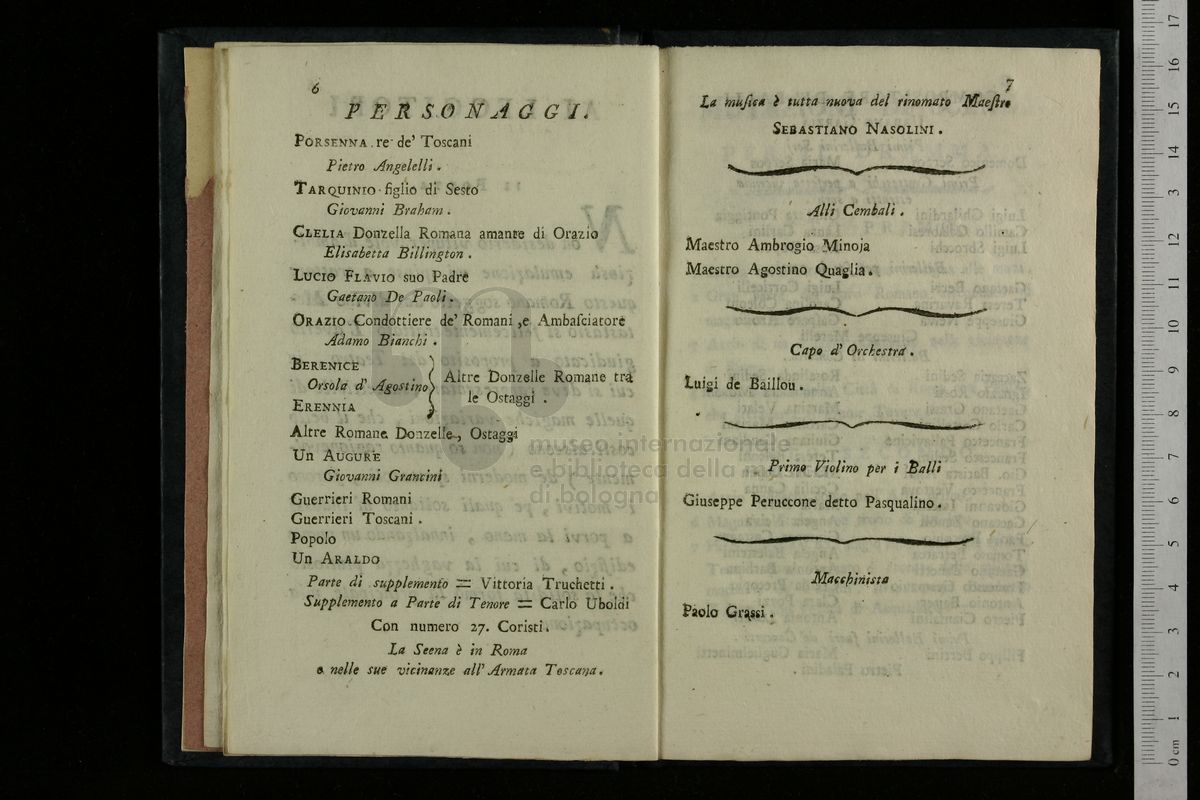 6
PERSONAGGI.
PORSENNA . re de' Toscani
Pietro Angelelli .
TARQUINIO figlio di Sesto
Giovanni Braham .
CLELIA Donzella Romana amante di Orazio
Elisabetta Billington .
LUCIO FLAVIO suo Padre
Gaetano De Paoli .
ORAZIO . Condottiere de' Romani , e Ambaſciatore
Adamo Bianchi .
BERENICE
Orsola d' Agostino
ERENNIA
Altre Donzelle Romane tra
le Ostaggi .
Altre Romane Donzelle , Ostaggi
Un AUGURE
Giovanni Grancini
Guerrieri Romani
Guerrieri Toscani .
Popolo
Un ARALDO
Parte di supplemento = Vittoria Truchetti .
Supplemento a Parte di Tenore = Carlo Uboldi
Con numero 27. Coristi.
La Seena è in Roma
e nelle sue vicinanze all' Armata Toscana .
7
La muſica è tutta nuova del rinomato Maeſtro
SEBASTIANO NASOLINI .
Alli Cembali .
Maestro Ambrogio Minoja
Maestro Agostino Quaglia .
Capo d' Orchestra .
Luigi de Baillou .
Primo Violino per i Balli
Giuseppe Peruccone detto Pasqualino .
Macchinista
Paolo Grassi .
museo internazionale
e biblioteca della musica
di bologna
0 cm 1 2 3 4 5 6 7 8 9 10 11 12 13 14 15 16 17